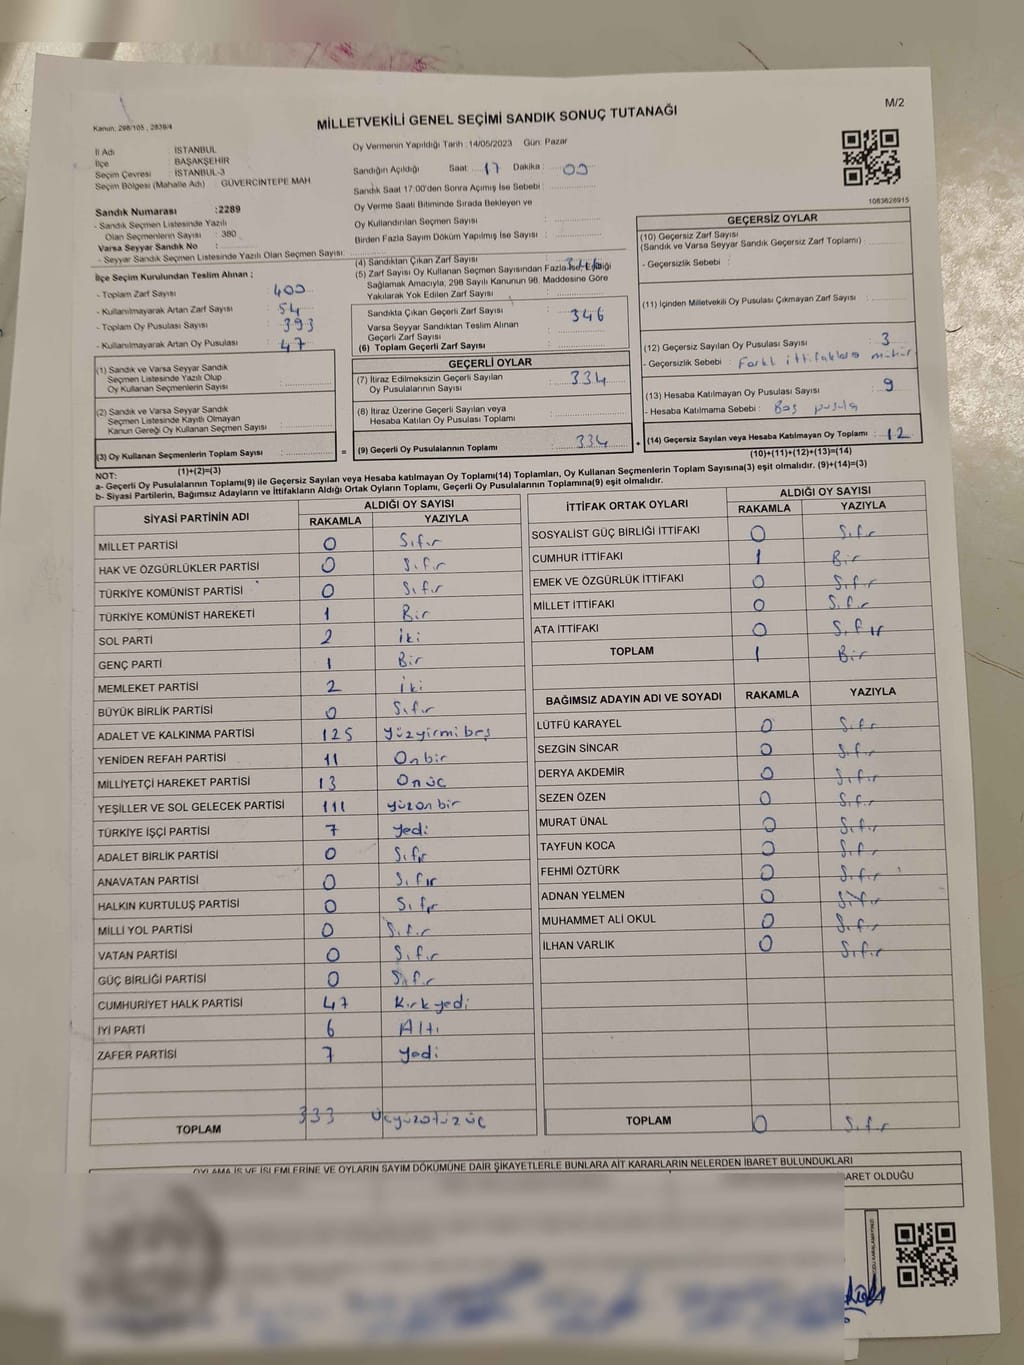 M/2
Kanun, 298/105 , 2839/4
MİLLETVEKİLİ GENEL SEÇİMİ SANDIK SONUÇ TUTANAĞI
İl Adı : İSTANBUL
İlçe : BAŞAKŞEHİR
Seçim Çevresi : İSTANBUL-3
Seçim Bölgesi (Mahalle Adı) : GÜVERCİNTEPE MAH
Sandık Numarası :2289
- Sandık Seçmen Listesinde Yazılı
Olan Seçmenlerin Sayısı : 380
Varsa Seyyar Sandık No :
- Seyyar Sandık Seçmen Listesinde Yazılı Olan Seçmen Sayısı
İlçe Seçim Kurulundan Teslim Alınan ;
- Toplam Zarf Sayısı : 400
- Kullanılmayarak Artan Zarf Sayısı : 54
- Toplam Oy Pusulası Sayısı : 393
- Kullanılmayarak Artan Oy Pusulası : 47
(1) Sandık ve Varsa Seyyar Sandık
Seçmen Listesinde Yazılı Olup
Oy Kullanan Seçmenlerin Sayısı :
(2) Sandık ve Varsa Seyyar Sandık
Seçmen Listesinde Kayıtlı Olmayan
Kanun Gereği Oy Kullanan Seçmen Sayısı :
(3) Oy Kullanan Seçmenlerin Toplam Sayısı :
(1)+(2)=(3)
Oy Vermenin Yapıldığı Tarih : 14/05/2023 Gün: Pazar
Sandığın Açıldığı Saat : 17 Dakika : 00
Sandık Saat 17:00'den Sonra Açımış İse Sebebi :
Oy Verme Saati Bitiminde Sırada Bekleyen ve
Oy Kullandırılan Seçmen Sayısı :
Birden Fazla Sayım Döküm Yapılmış İse Sayısı :
(4) Sandıktan Çıkan Zarf Sayısı
(5) Zarf Sayısı Oy Kullanan Seçmen Sayısından Fazla İse, Eşitliği
Sağlamak Amacıyla; 298 Sayılı Kanunun 98. Maddesine Göre
Yakılarak Yok Edilen Zarf Sayısı :
Sandıkta Çıkan Geçerli Zarf Sayısı : 346
Varsa Seyyar Sandıktan Teslim Alınan
Geçerli Zarf Sayısı :
(6) Toplam Geçerli Zarf Sayısı :
GEÇERLİ OYLAR
(7) İtiraz Edilmeksizin Geçerli Sayılan : 334
Oy Pusulalarının Sayısı
(8) İtiraz Üzerine Geçerli Sayılan veya
Hesaba Katılan Oy Pusulası Toplamı :
(9) Geçerli Oy Pusulalarının Toplamı : 334
1083628915
GEÇERSİZ OYLAR
(10) Geçersiz Zarf Sayısı
(Sandık ve Varsa Seyyar Sandık Geçersiz Zarf Toplamı) :
- Geçersizlik Sebebi :
(11) İçinden Milletvekili Oy Pusulası Çıkmayan Zarf Sayısı :
(12) Geçersiz Sayılan Oy Pusulası Sayısı : 3
- Geçersizlik Sebebi : Farklı ittifaklara mühür
(13) Hesaba Katılmayan Oy Pusulası Sayısı : 9
- Hesaba Katılmama Sebebi : Boş pusula
(14) Geçersiz Sayılan veya Hesaba Katılmayan Oy Toplamı : 12
(10)+(11)+(12)+(13)=(14)
NOT:
a- Geçerli Oy Pusulalarının Toplamı(9) ile Geçersiz Sayılan veya Hesaba katılmayan Oy Toplamı(14) Toplamları, Oy Kullanan Seçmenlerin Toplam Sayısına(3) eşit olmalıdır. (9)+(14)=(3)
b- Siyasi Partilerin, Bağımsız Adayların ve İttifakların Aldığı Ortak Oyların Toplamı, Geçerli Oy Pusulalarının Toplamına(9) eşit olmalıdır.
SİYASİ PARTİNİN ADI ALDIĞI OY SAYISI
RAKAMLA YAZIYLA
MİLLET PARTİSİ 0 Sıfır
HAK VE ÖZGÜRLÜKLER PARTİSİ 0 Sıfır
TÜRKİYE KOMÜNİST PARTİSİ 0 Sıfır
TÜRKİYE KOMÜNİST HAREKETİ 1 Bir
SOL PARTİ 2 iki
GENÇ PARTİ 1 Bir
MEMLEKET PARTİSİ 2 iki
BÜYÜK BİRLİK PARTİSİ 0 Sıfır
ADALET VE KALKINMA PARTİSİ 125 yüzyirmi beş
YENİDEN REFAH PARTİSİ 11 Onbir
MİLLİYETÇİ HAREKET PARTİSİ 13 Onüç
YEŞİLLER VE SOL GELECEK PARTİSİ 111 yüzonbir
TÜRKİYE İŞÇİ PARTİSİ 7 yedi
ADALET BİRLİK PARTİSİ 0 Sıfır
ANAVATAN PARTİSİ 0 Sıfır
HALKIN KURTULUŞ PARTİSİ 0 Sıfır
MİLLİ YOL PARTİSİ 0 Sıfır
VATAN PARTİSİ 0 Sıfır
GÜÇ BİRLİĞİ PARTİSİ 0 Sıfır
CUMHURİYET HALK PARTİSİ 47 Kırkyedi
İYİ PARTİ 6 Altı
ZAFER PARTİSİ 7 yedi
TOPLAM 333 Üçyüzotuzüç
İTTİFAK ORTAK OYLARI ALDIĞI OY SAYISI
RAKAMLA YAZIYLA
SOSYALİST GÜÇ BİRLİĞİ İTTİFAKI 0 Sıfır
CUMHUR İTTİFAKI 1 Bir
EMEK VE ÖZGÜRLÜK İTTİFAKI 0 Sıfır
MİLLET İTTİFAKI 0 Sıfır
ATA İTTİFAKI 0 Sıfır
TOPLAM 1 Bir
BAĞIMSIZ ADAYIN ADI VE SOYADI RAKAMLA YAZIYLA
LÜTFÜ KARAYEL 0 Sıfır
SEZGİN SİNCAR 0 Sıfır
DERYA AKDEMİR 0 Sıfır
SEZEN ÖZEN 0 Sıfır
MURAT ÜNAL 0 Sıfır
TAYFUN KOCA 0 Sıfır
FEHMİ ÖZTÜRK 0 Sıfır
ADNAN YELMEN 0 Sıfır
MUHAMMET ALİ OKUL 0 Sıfır
İLHAN VARLIK 0 Sıfır
TOPLAM 0 Sıfır
OYLAMA İŞ VE İŞLEMLERİNE VE OYLARIN SAYIM DÖKÜMÜNE DAİR ŞİKAYETLERLE BUNLARA AİT KARARLARIN NELERDEN İBARET BULUNDUKLARI
BARET OLDUĞU